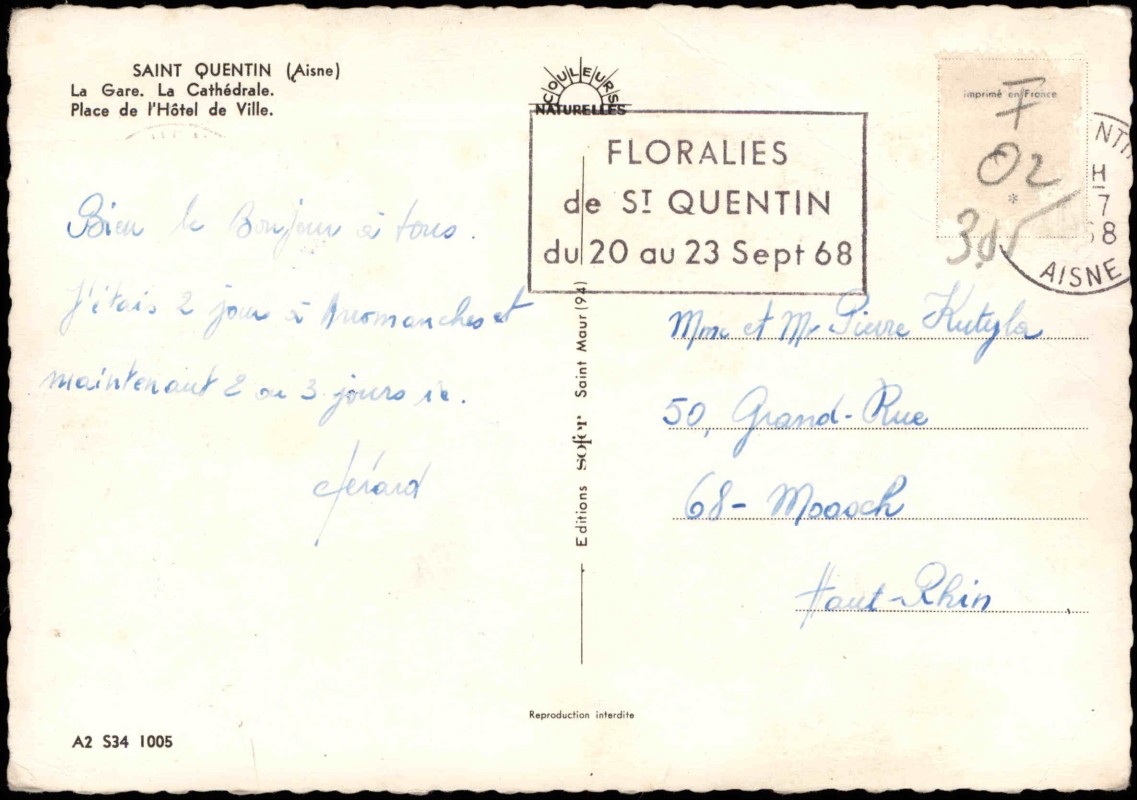 SAINT QUENTIN (Aisne)
La Gare. La Cathédrale.
Place de l'Hôtel de Ville.
Bien le Bonjour à tous.
J'étais 2 jours à Arromanches et
maintenant 2 ou 3 jours ic.
Gérard
A2 S34 1005
COULEURS
NATURELLES
FLORALIES
de ST QUENTIN
du 20 au 23 Sept 68
Editions sofer Saint Maur (94)
Reproduction interdite
imprimé en France
F
02
*
NTI
H
7
68
AISNE
Mme et Mr Pierre Kutyla
50, Grand-Rue
68- Moosch
Haut-Rhin